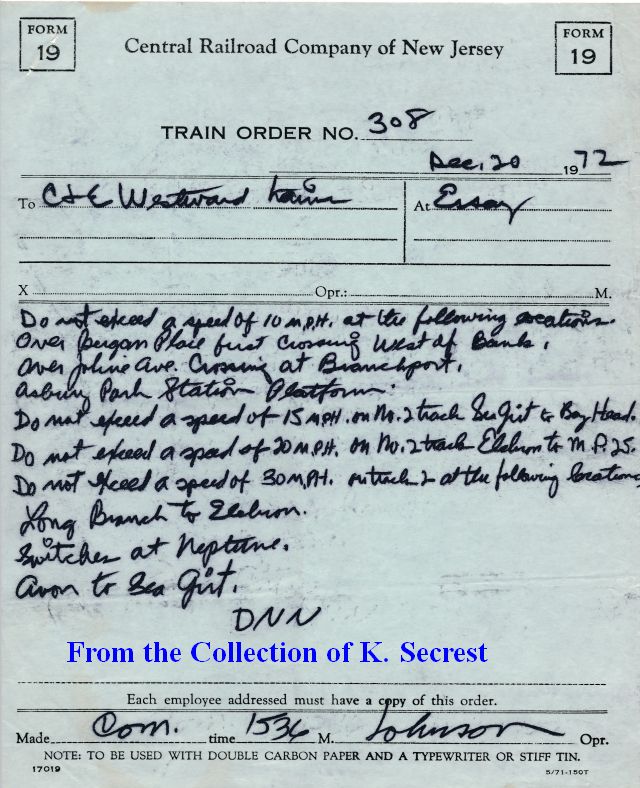 FORM 19
Central Railroad Company of New Jersey
FORM 19
TRAIN ORDER NO. 308
Dec. 20 1972
To C&E Westward Trains At Essay
X Opr.: M.
Do not exceed a speed of 10 M.P.H. at the following locations.
Over Bergen Place first Crossing West of Bank.
Over Joline Ave. Crossing at Branchport.
Asbury Park Station Platform.
Do not exceed a speed of 15 MPH. on No. 2 track Sea Girt to Bay Head.
Do not exceed a speed of 20 M.P.H. on No. 2 track Elberon to M.P. 25.
Do not exceed a speed of 30 M.P.H. on track 2 at the following locations
Long Branch to Elberon.
Switches at Neptune.
Avon to Sea Girt.
DNN
From the Collection of K. Secrest
Each employee addressed must have a copy of this order.
Made Com. time 1536 M. Johnson Opr.
NOTE: TO BE USED WITH DOUBLE CARBON PAPER AND A TYPEWRITER OR STIFF TIN.
17019 5/71-150T